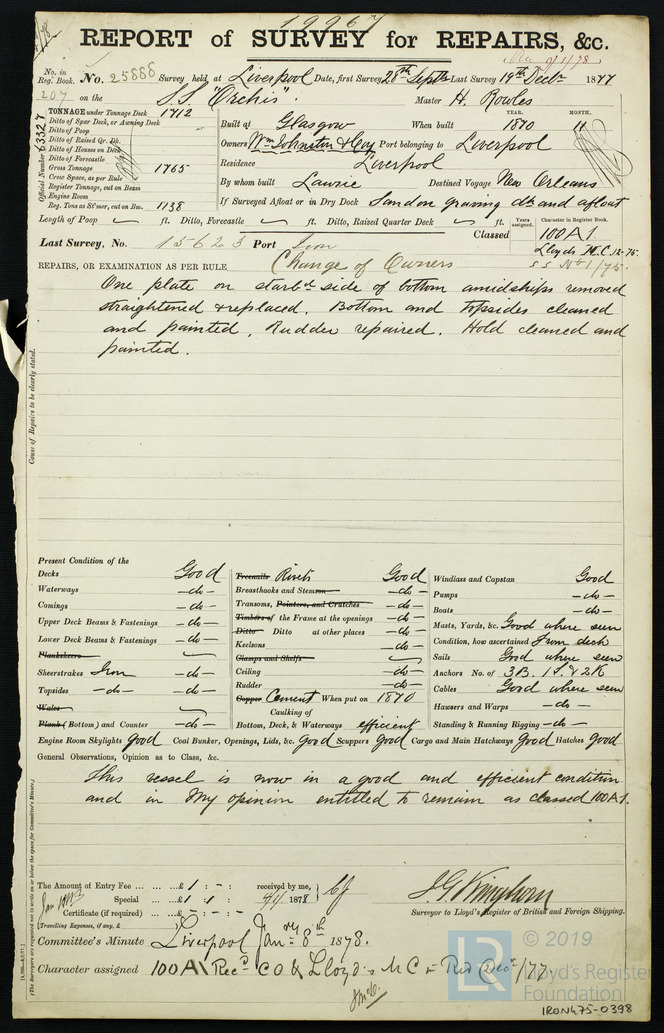 19967
REPORT of SURVEY for REPAIRS, &c.
No. in Reg. Book. No. 25888 Survey held at Liverpool Date, first Survey 28th Septr Last Survey 19th Decr 1877
207 on the S.S. "Orchis". Master H. Rowles
TONNAGE under Tonnage Deck 1712
Ditto of Spar Deck, or Awning Deck
Ditto of Poop
Ditto of Raised Qr. Dk.
Ditto of Houses on Deck
Ditto of Forecastle
Gross Tonnage 1765
Crew Space, as per Rule
Register Tonnage, cut on Beam
Engine Room
Reg. Tons as St'mer, cut on Bm. 1138
Official Number 63327
Built at Glasgow When built YEAR. 1870 MONTH. 11
Owners Wm Johnston & Coy Port belonging to Liverpool
Residence Liverpool
By whom built Laurie Destined Voyage New Orleans
If Surveyed Afloat or in Dry Dock Sandon graving dk and afloat
Length of Poop ft. Ditto, Forecastle ft. Ditto, Raised Quarter Deck ft.
Years assigned. Character in Register Book.
Classed 100 A1.
Lloyds M.C. 12-75.
S S No 1/75.
Last Survey, No. 15623 Port Iron
REPAIRS, OR EXAMINATION AS PER RULE Change of Owners
One plate on starbd side of bottom amidships removed
straightened & replaced. Bottom and topsides cleaned
and painted, Rudder repaired. Hold cleaned and
painted.
Cause of Repairs to be clearly stated.
Present Condition of the
Decks Good
Waterways - do -
Comings - do -
Upper Deck Beams & Fastenings - do -
Lower Deck Beams & Fastenings - do -
Plankshears
Sheerstrakes Iron - do -
Topsides - do - - do -
Wales
Plank (Bottom) and Counter - do -
Treenails Rivets Good
Breasthooks and Stemson - do -
Transoms, Pointers, and Crutches - do -
Timbers of the Frame at the openings - do -
Ditto Ditto at other places - do -
Keelsons - do -
Clamps and Shelfs
Ceiling - do -
Rudder - do -
Copper Cement When put on 1870
Caulking of
Bottom, Deck, & Waterways efficient
Windlass and Capstan Good
Pumps - do -
Boats - do -
Masts, Yards, &c. Good where seen
Condition, how ascertained from deck
Sails Good where seen
Anchors No. of 3B. 1S. & 2K
Cables Good where seen
Hawsers and Warps - do -
Standing & Running Rigging - do -
Engine Room Skylights good Coal Bunker, Openings, Lids, &c. Good Scuppers good Cargo and Main Hatchways Good Hatches good
General Observations, Opinion as to Class, &c.
This vessel is now in a good and efficient condition
and in my opinion entitled to remain as classed 100A1.
The Amount of Entry Fee ... £ 1 : - : - received by me,
Special ... £ 1 : 1 : 1878
Certificate (if required) ... £
(Travelling Expenses, if any, £
J.G. Kinghorn
Surveyor to Lloyd's Register of British and Foreign Shipping.
Committee's Minute Liverpool Janry 8th 1878.
Character assigned 100 A1 Recd C O & Lloyd's M C
© 2019
LR
Lloyd's Register
Foundation
IRON475-0398